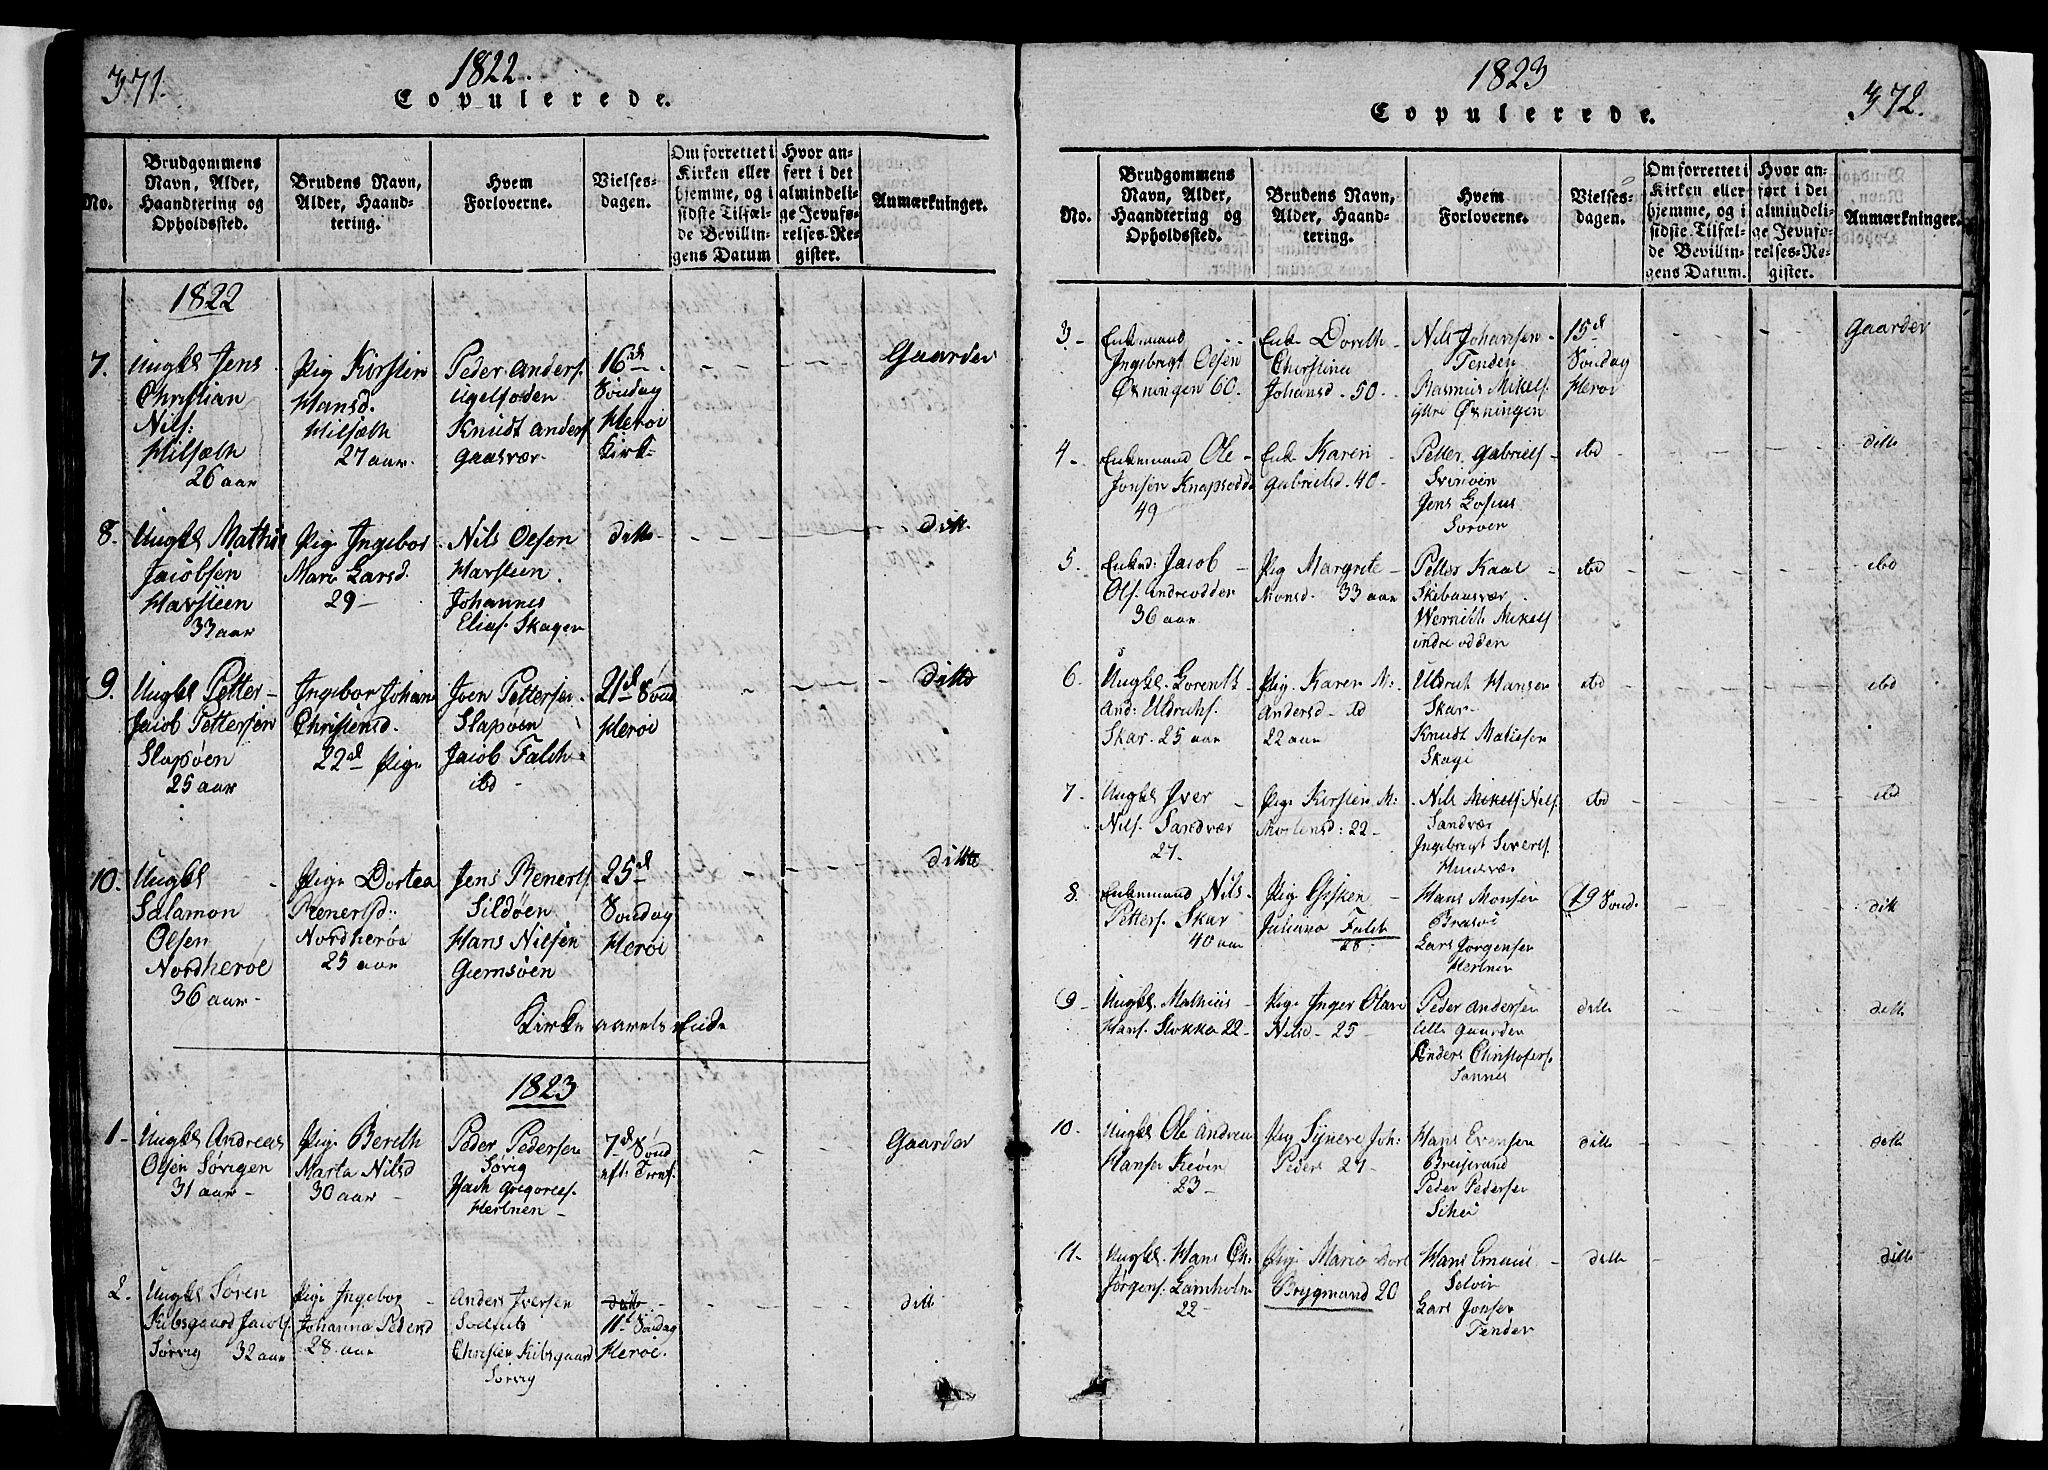 371.
1822.
Copulerede.
No.
Brudgommens
Navn, Alder,
Haandtering og
Opholdssted.
Brudens Navn,
Alder, Haand-
tering.
Hvem
Forloverne.
Vielses-
dagen.
Om forrettet i
Kirken eller
hjemme, og i
sidste Tilfæl-
de Bevillin-
gens Datum
Hvor an-
ført i det
almindeli-
ge Jevnfø-
relses-Re-
gister.
Anmærkninger.
1822
7.
Ungkl Jens
Christian
Nils:
Hilsæth
26 aar
Pig. Kirstin
Hansd.
Hilsæth
27 aar.
Peder Anders.
Ugelfoden
Knudt Anders
Gaasvær.
16d
Søndag
Herøi
Kirk-
Gaarder
8.
Ungkl Mathis
Jacobsen
Harsteen
33 aar
Pig. Ingebor
Mari Larsd.
29 -
Nils Olsen
Harsteen
Johannes
Elias. Skagen
ditto
ditt
9.
Ungkl Petter
Jacob Pettersen
Slapøen
25 aar
Ingebor Johan
Christensd.
22d Pige
Joen Pettersen
Slapøen
Jacob Falch
ibd -
21d Sønd
Herøi
ditto
10.
Ungkl
Salamon
Olsen
Nordherøe
36 aar -
Pige Dortea
Renertsd:
Nordherøe
25 aar
Jens Renerts
Sildøen
Hans Nilsen
Gemsøen
25d
Søndag
Herøi
ditto
Kirke aarets Ende
1823
1 -
Ungkl Andreas
Olsen Sörvigen
31 aar -
Pige Bereth
Marta Nilsd
30 aar -
Peder Pedersen
Sørvig
Isach Gregories.
Herlnen -
7d Sønd
eft: Trnt.
Gaarder
2.
Ungkl Søren
Kibsgaard Jacobs.
Sørvig 32 aar
Pige Ingebor
Johanna Pedersd
28 aar
Anders Iversen
Christen Kibsgaard
Sørvig
ditto
11d Søndag
Herøe.
ditt
1823
Copulerede.
372.
No.
Brudgommens
Navn, Alder,
Haandtering og
Opholdssted.
Brudens Navn,
Alder, Haand-
tering.
Hvem
Forloverne.
Vielses-
dagen.
Om forrettet i
Kirken eller
hjemme, og i
sidste Tilfæl-
de Bevillin-
gens Datum.
Hvor an-
ført i det
almindeli-
ge Jevnfø-
relses-Re-
gister.
Anmærkninger.
3 -
Enkemand
Ingebrigt Olsen
Øxningen 60.
Enke Doreth
Christina
Johansd. 50 -
Nils Johansen
Tenden
Rasmus Mikels.
ytre Øxningen
15d
Søndag
Herøi
Gaarder
4 -
Enkemand Ole
Jonsen Knapsodde
49
Enke Karen
Gabrielsd. 40 -
Petter Gabriels -
Svinøen
Jens
ibd
ditto
5.
Enkd: Jacob
Ols. Indreodden
36 aar
Pig Margrete
Monsd. 33 aar
Petter Kaal
Skibaasvær
Mikels
indre odden
ibd
ibd
6.
Ungkl. Lorents
And: Uldrichs.
Skar. 25 aar
Pig. Karen M:
Andersd - ibd
22 aar
Uldrich Hansen
Skar -
Knudt Matisen
Skage
ibd
ibd
7.
Ungkl Iver
Nils. Sandvær
27 -
Pige Kirsten M:
Mortensd: 22 -
Nils Mikels Nils.
Sandvær
Ingebrigt Siverts.
ibd
ibd
8.
Enkemand Nils
Petters. Skar
40 aar
Pige Gisken
Juliana Falch
28
Hans Monsen
Brasøi
Lars Jørgensen
19 Sønd.
ditt
9
Ungkl. Mathias
Hans. Slokka 22 -
Pige Inger Olave
Nilsd - 25
Peder Andersen
Gaarden
Anders Christofers.
Sannes
ditto
ditto
10.
Ungkl Ole Andrea
Hansen
23 -
Pig Synneve Joh:
Peder 27 -
Hans Evensen
Breistrand
Peder Pedersen
ditto
ditto
11.
Ungkl. Hans Ch:
Jørgens. Lamholm
22 -
Pige Maria Dort
Brygmand 20
Hans
Selvir
Lars Jonsen
Tender
ditto
ditto